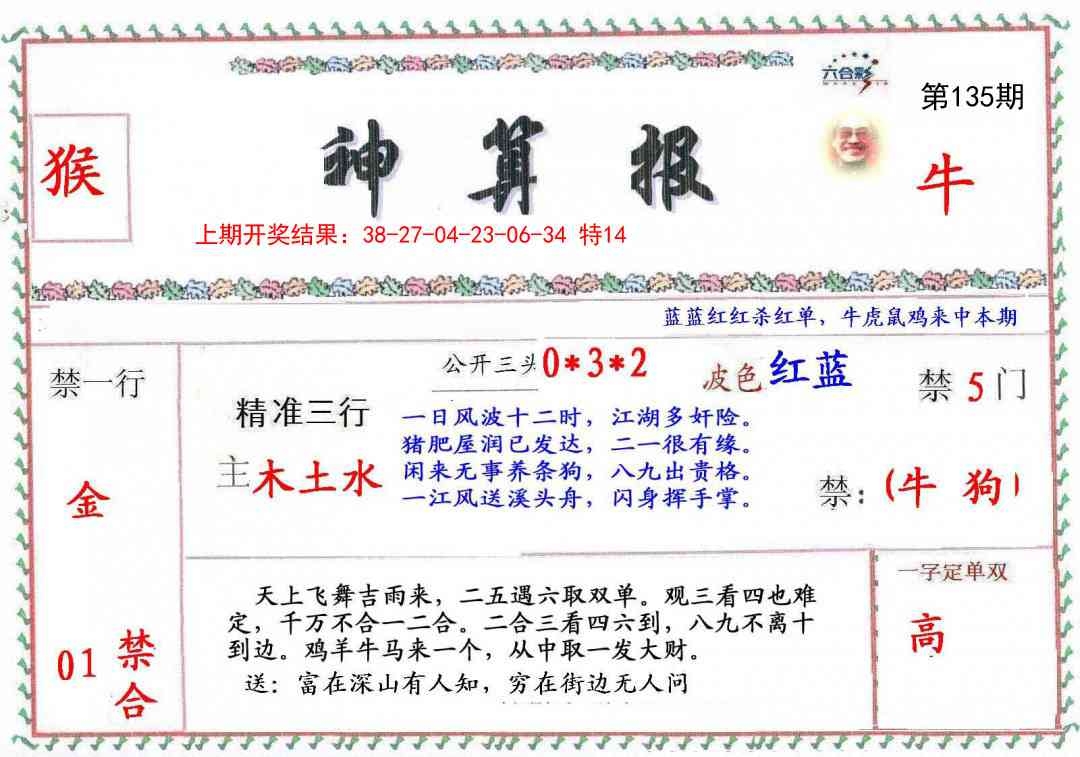 六合彩
第135期
猴
神算报
牛
上期开奖结果：38-27-04-23-06-34 特14
蓝蓝红红杀红单，牛虎鼠鸡来中本期
禁一行
金
01 禁合
公开三头0*3*2
波色红蓝
禁5门
精准三行
主木土水
一日风波十二时，江湖多奸险。
猪肥屋润已发达，二一很有缘。
闲来无事养条狗，八九出贵格。
一江风送溪头舟，闪身挥手掌。
禁：(牛 狗)
天上飞舞吉雨来，二五遇六取双单。观三看四也难
定，千万不合一二合。二合三看四六到，八九不离十
到边。鸡羊牛马来一个，从中取一发大财。
送：富在深山有人知，穷在街边无人问
一字定单双
高